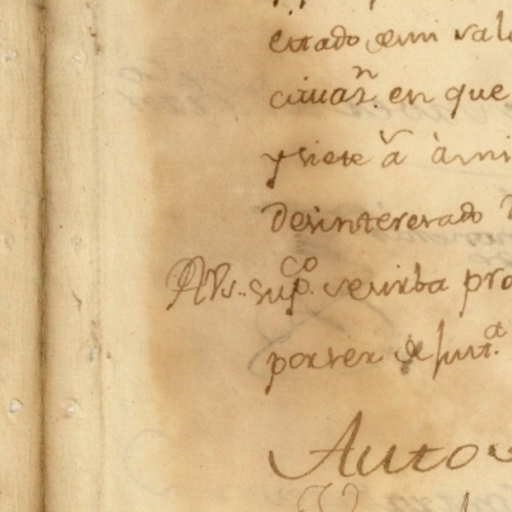 estado de mi valo
cituazn. en que
y siete a
desinteresado
AVs. supco. se sirba pro
por ser de just.a
Auto